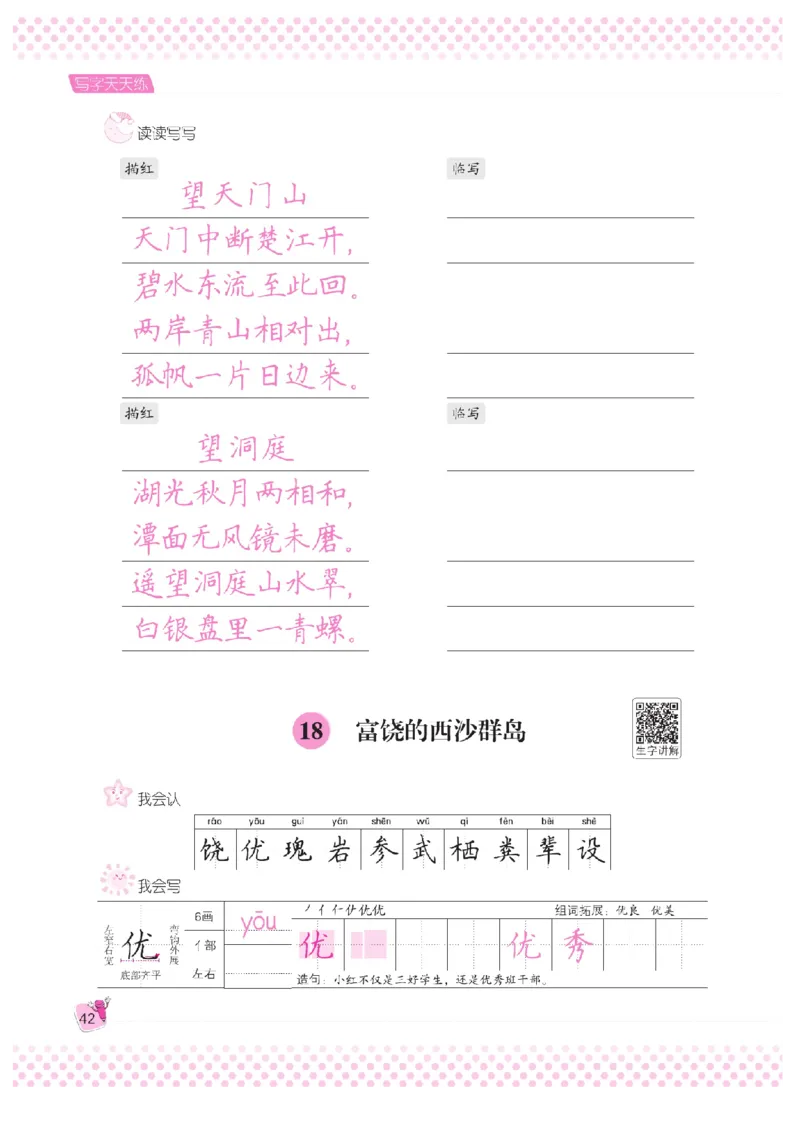 写字天天练
读读写写
描红
临写
望天门山
天门中断楚江开，
碧水东流至此回。
两岸青山相对出，
孤帆一片日边来。
描红
临写
望洞庭
湖光秋月两相和，
潭面无风镜未磨。
遥望洞庭山水翠，
白银盘里一青螺。
18 富饶的西沙群岛
生字讲解
我会认
ráo yōu guī yán shēn wǔ qī fèn bèi shè
饶 优 瑰 岩 参 武 栖 粪 辈 设
我会写
左窄右宽
优
弯钩外展
底部齐平
6画
亻部
左右
yōu
组词拓展：优良 优美
优 优 秀
造句：小红不仅是三好学生，还是优秀班干部。
42